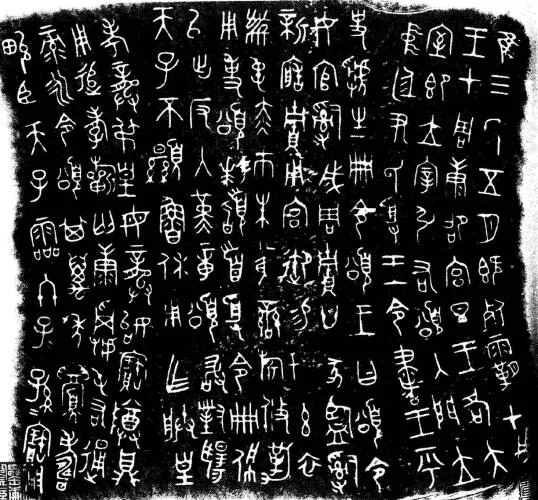 隹三年五月既死霸甲戌
王才周康卲宮旦王各大
室即立宰引右頌入門立
中廷尹氏受王令書王乎
史虢生冊令頌王曰頌令
女官𤔲成周貯廿家監𤔲
新造貯用宮御易女玄衣
黹屯赤巿朱黃䜌旂攸勒
用事頌拜𩒨首受令冊佩
以出反入堇章頌敢對揚
天子不顯魯休用乍朕皇
考龏弔皇母龏始寶尊鼎
用追孝𣄨匄康虔屯右通
彔永令頌其萬年眉壽
畯臣天子霝冬子=孫=寶用